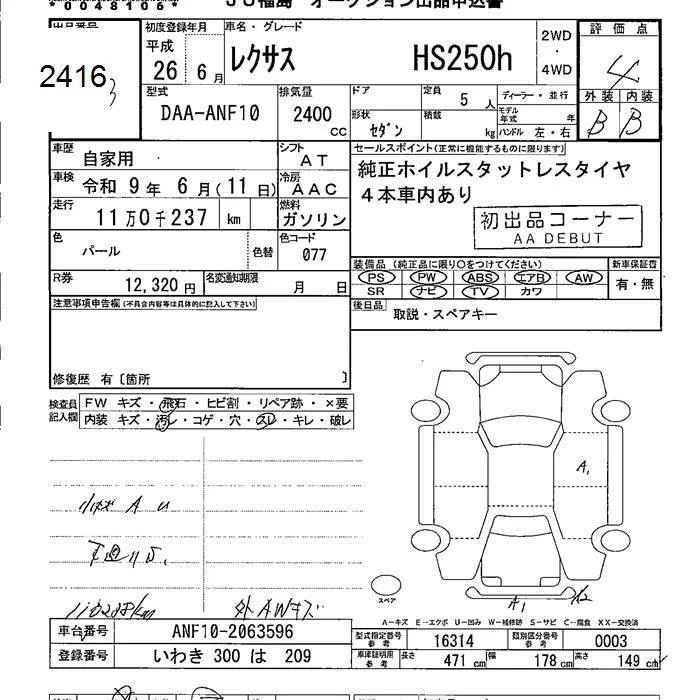 *00481006* JU福島 オークション出品申込書
出品番号 初度登録年月 車名・グレード 2WD・4WD 評価点
2416 平成 26 6月 レクサス HS250h 4
外装 内装
B B
型式 排気量 ドア 定員 5 人 ディーラー・並行
DAA-ANF10 2400 cc 形状 セダン 積載 kg モデル年式 年
ハンドル 左・右
車歴 自家用 シフト AT セールスポイント(正常に機能するものに限ります)
車検 令和 9年 6月(11日) 冷房 AAC 純正ホイルスタットレスタイヤ
4本車内あり
走行 11万0千237 km 燃料 ガソリン 初出品コーナー
AA DEBUT
色 パール 色替 色コード 077
装備品 (純正品に限り○をつけてください) 新車保証書
PS PW ABS エアB AW 有・無
SR ナビ TV カワ
R券 12,320 円 名変通知期限 月 日
後日品 取説・スペアキー
注意事項申告欄(不具合内容等は具体的に記入して下さい)
修復歴 有〔箇所 〕
検査員記入欄 FW キズ・飛石・ヒビ割・リペア跡・×要
内装 キズ・汚レ・コゲ・穴・スレ・キレ・破レ
A1
小キズ A U
下廻りS.
110288km 外AWキズ
スペア
A1
A―キズ E―エクボ U―凹み W―補修跡 S―サビ C―腐食 XX―交換済
車台番号 ANF10-2063596 型式指定番号 参考 16314 類別区分番号 参考 0003
登録番号 いわき 300 は 209 車庫証明用 参考 長さ 471 cm 幅 178 cm 高さ 149 cm